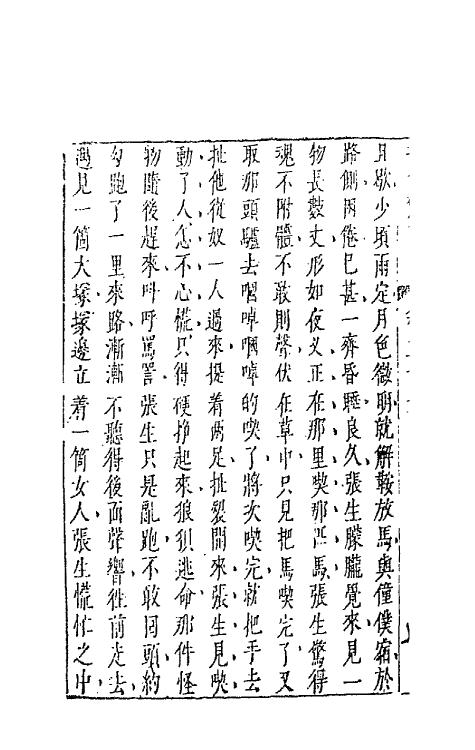 且歇少頃雨定月色微明就解鞍放馬與僮僕宿於
路側困倦已甚一齊昏睡良久張生朦朧覺來見一
物長數丈形如夜叉正在那里喫那匹馬張生驚得
魂不附體不敢則聲伏在草中只見把馬喫完了又
取那頭驢去咽啅咽啅的喫了將次喫完就把手去
扯他從奴一人過來提着兩足扯裂開來張生見喫
動了人怎不心慌只得硬挣起來狼狽逃命那件怪
物隨後趕來呌呼罵詈張生只是亂跑不敢回頭約
勾跑了一里來路漸漸不聽得後面聲響徃前走去
遇見一箇大塚塚邊立着一箇女人張生慌忙之中